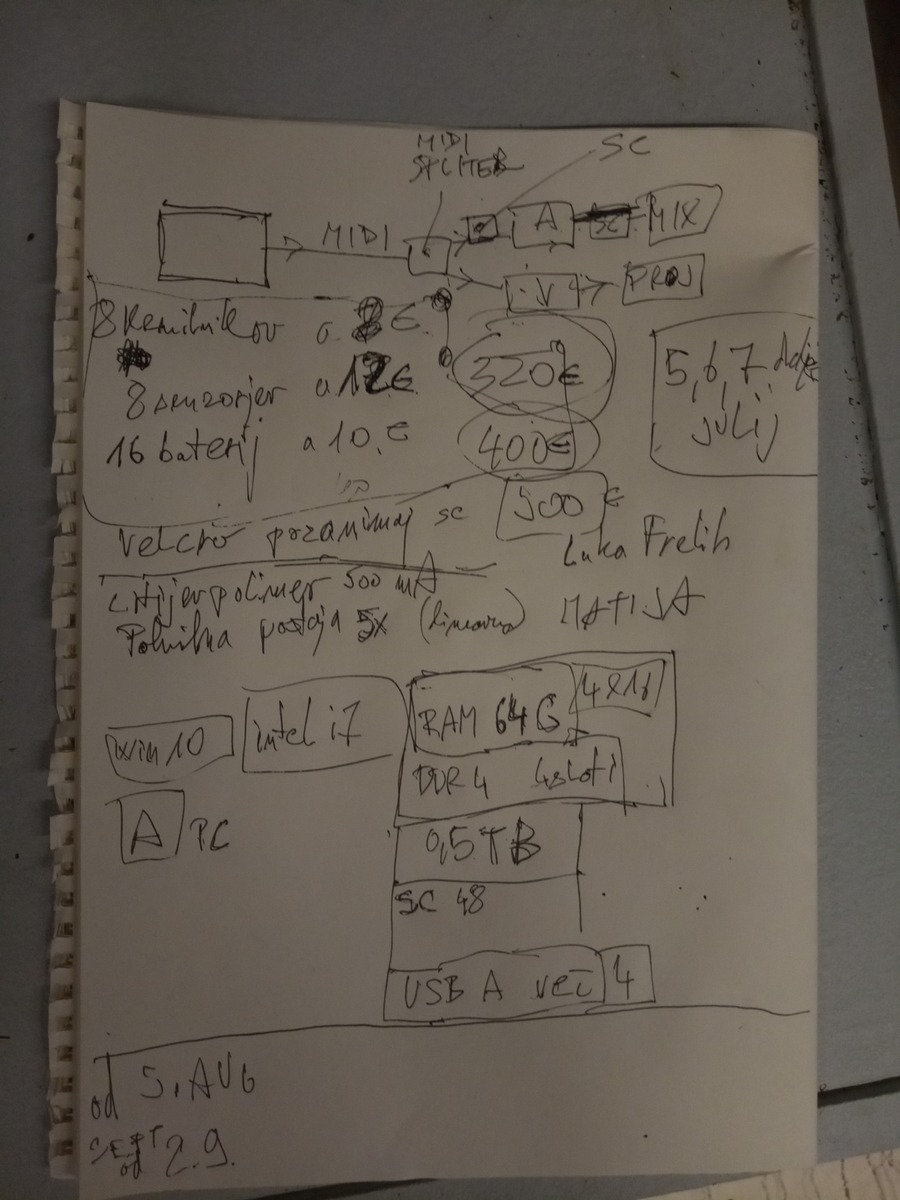 MIDI
SPLITER
SC
MIDI
A
MIX
V
PROJ
8 krmilnikov a 8 €
8 senzorjev a 12 €
320 €
16 baterij a 10 €
400 €
5, 6, 7,
julij
Velcro pozanimaj se
500 €
Luka Frelih
Litijev polimer 500 mA
Polnilna postaja 5x (linearna)
MATIJA
win 10
intel i7
RAM 64G
4x16
DDR4 4 sloti
A PC
0,5 TB
SC 48
USB A več 4
od 5. AUG
SEPT
od 2.9.